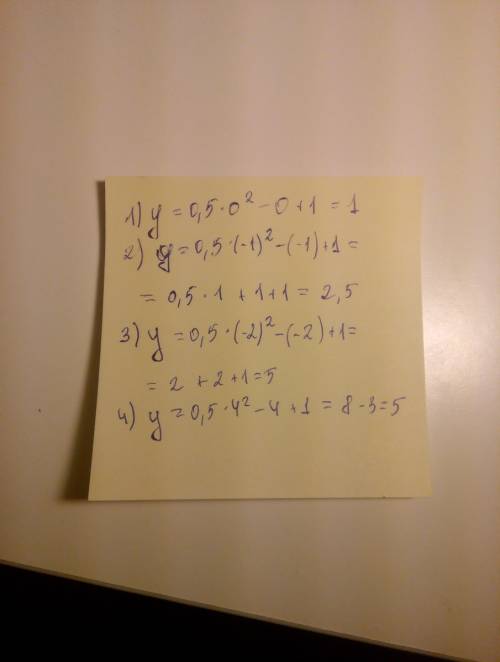 1) y = 0,5 · 0² - 0 + 1 = 1
2) y = 0,5 · (-1)² - (-1) + 1 =
= 0,5 · 1 + 1 + 1 = 2,5
3) y = 0,5 · (-2)² - (-2) + 1 =
= 2 + 2 + 1 = 5
4) y = 0,5 · 4² - 4 + 1 = 8 - 3 = 5